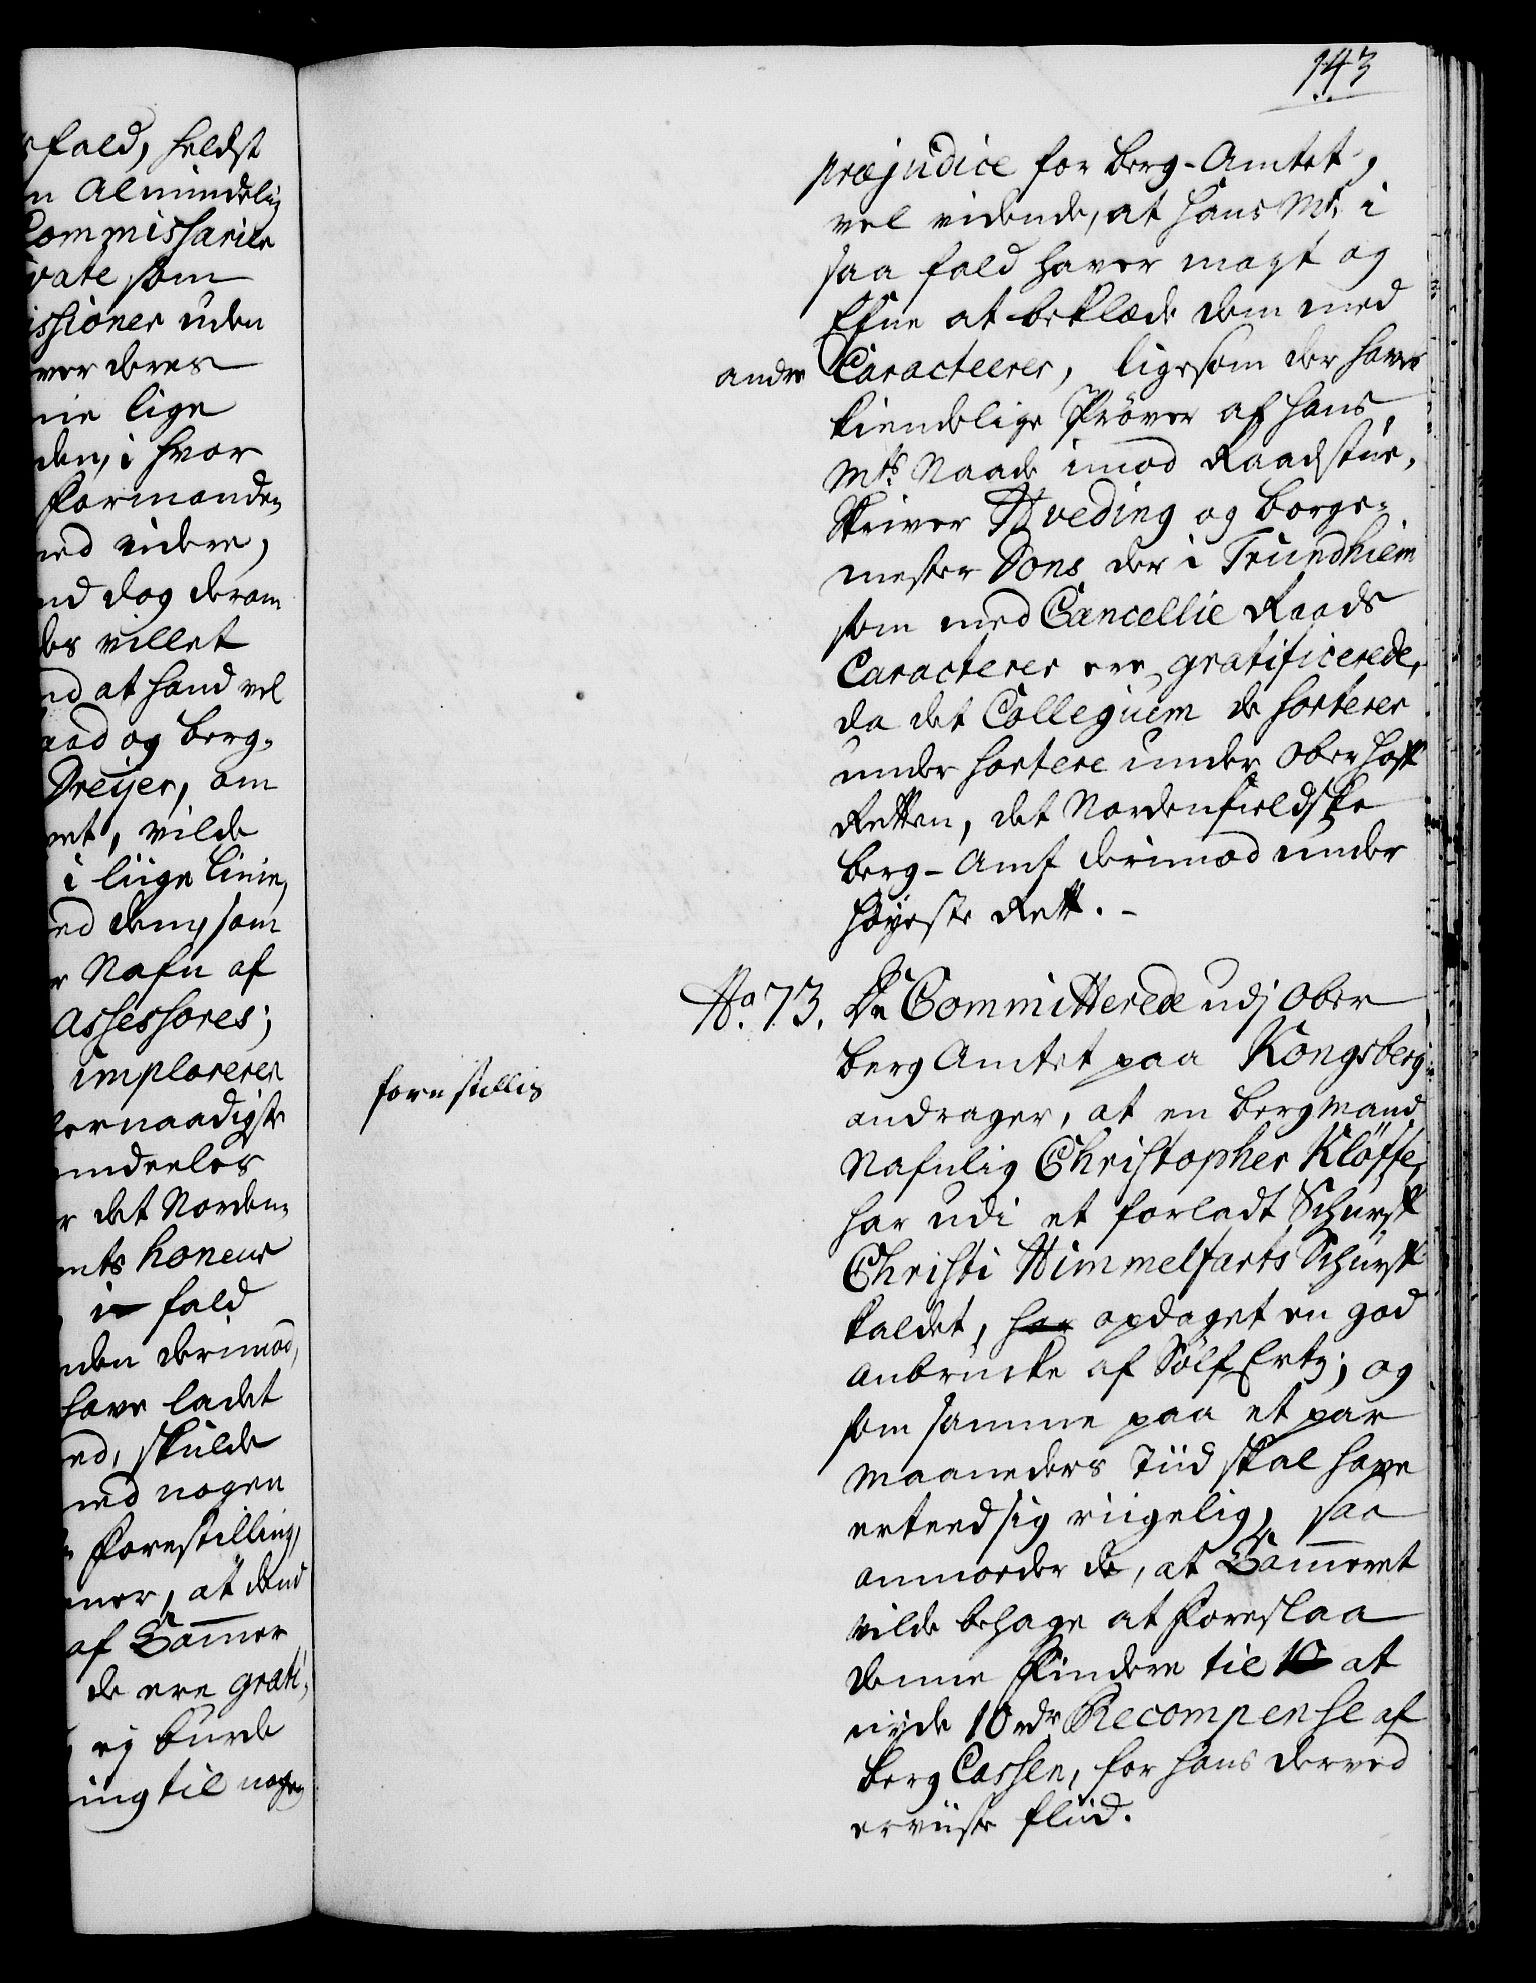 fald, heldst
n Almindelig
Commissarier
vate som
issioner uden
ver deres
nie lige
den, i hvor
Formanden
med videre,
nd dog derom
des villet
nd at hand vel
aad og Berg-
Dreyer, om
met, vilde
i liige Linie,
ed dem, som
r Nafn af
Assessores;
implorerer
lernaadigste
mdeelos
r det Norden-
mts honeur
i fald
nden derimod,
have ladet
ed, skulde
med nogen
Forestilling,
ner, at dend
af Cammer
de ere grati-
ej burde
ing til nogen
143
præjudice for Berg-Amtet,
vel vidende, at Hans Mt. i
saa fald haver magt og
Efne at beklæde dem med
andre Caracteerer, ligesom der haves
kiendelige Prøver af Hans
Mts. Naade imod Raadstue-
skriver Hveding og Borge-
mester Dons der i Trundhiem
som med Cancellie Raads
Caracterer ere gratificerede,
da det Collegium de sorterer
under sortere under Oberhoff
Retten, det Nordenfieldske
Berg-Amt derimod under
Høyeste Rett. -
No. 73. De Committerede udj Ober
Berg Amtet paa Kongsberg
andrager, at en Bergmand
Nafnlig Christopher Kløffer
har udi et forladt Schurff
forestilles
Christi Himmelfarts Schurff
kaldet, har opdaget en god
Anbrucke af Sølf Ertz; og
som samme paa et par
Maaneders Tiid skal have
erteed sig riigelig, saa
anmoder de, at Cammeret
vilde behage at Foreslaa
denne Findere til 10 at
nyde 10 rdr Recompense af
Berg Cassen, for hans derved
erviiste fliid.